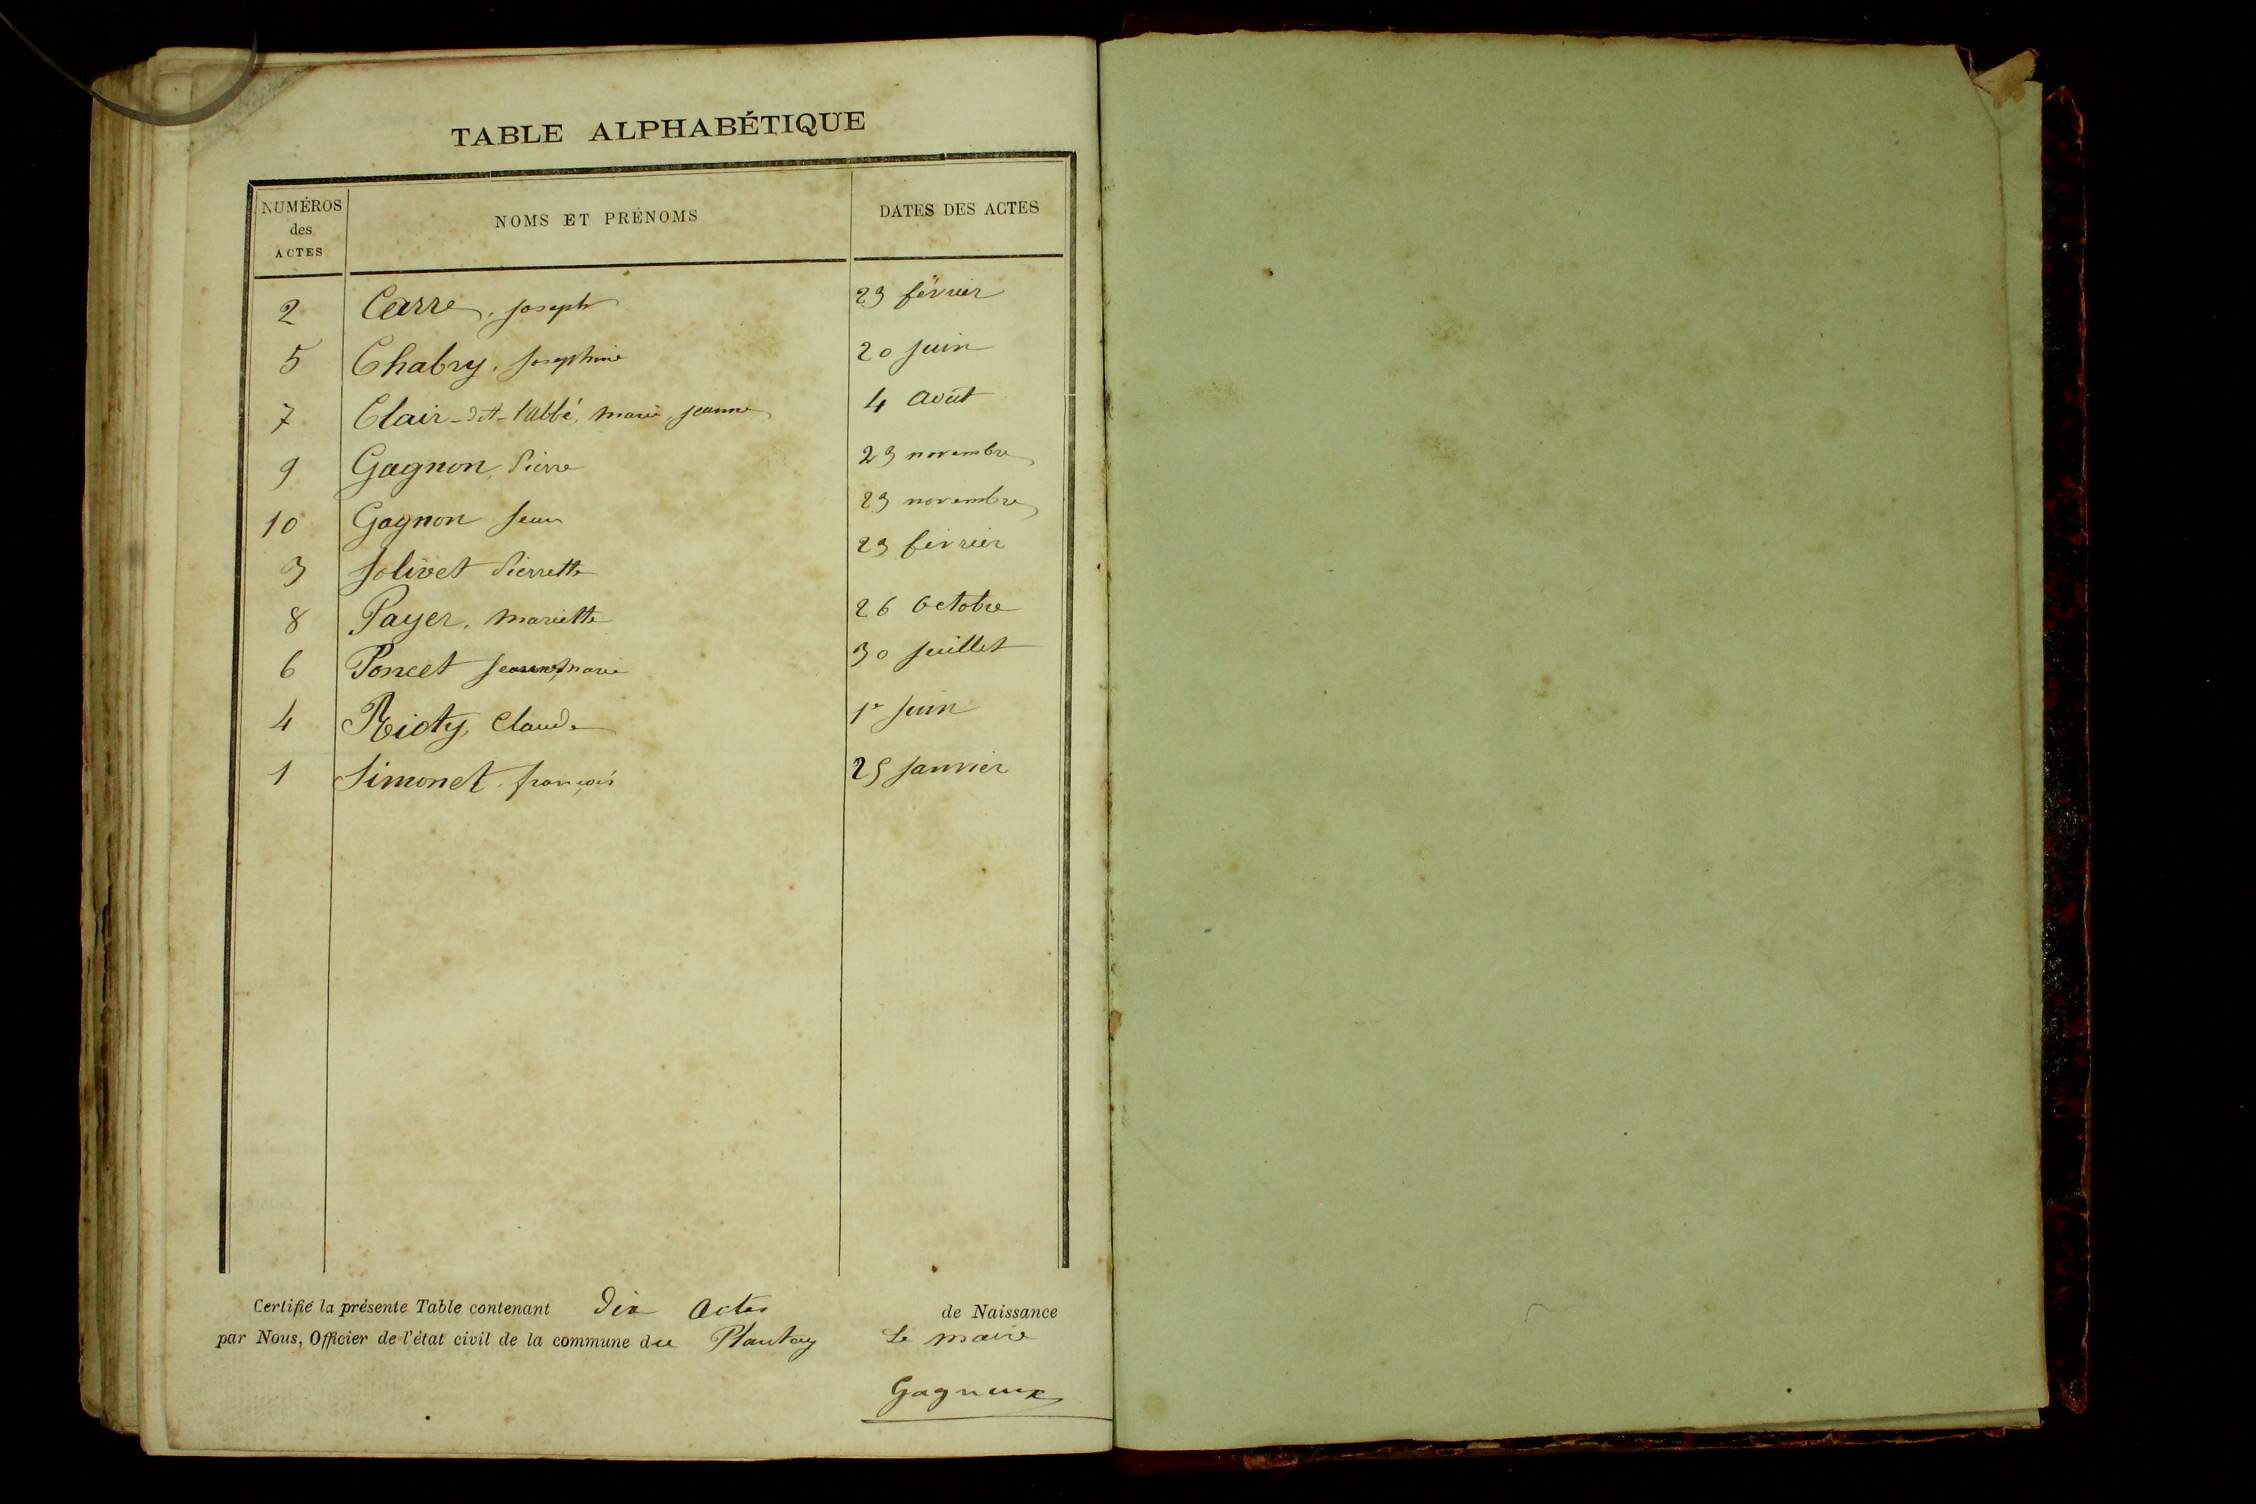 TABLE ALPHABÉTIQUE
NUMÉROS des ACTES NOMS ET PRÉNOMS DATES DES ACTES
2 Carre, Joseph 23 février
5 Chabry, Josephine 20 Juin
7 Clair-dit-l'abbé, marie, jeanne 4 Août
9 Gagnon, Pierre 23 novembre
10 Gagnon Jean 23 novembre
3 Jolivet Pierrette 23 février
8 Payer, Mariette 26 Octobre
6 Poncet Jeanne, marie 30 Juillet
4 Rioty, Claude 1er Juin
1 Simonet, françois 25 Janvier
Certifié la présente Table contenant Dix Actes de Naissance
par Nous, Officier de l'état civil de la commune du Plantay Le maire
Gagneux